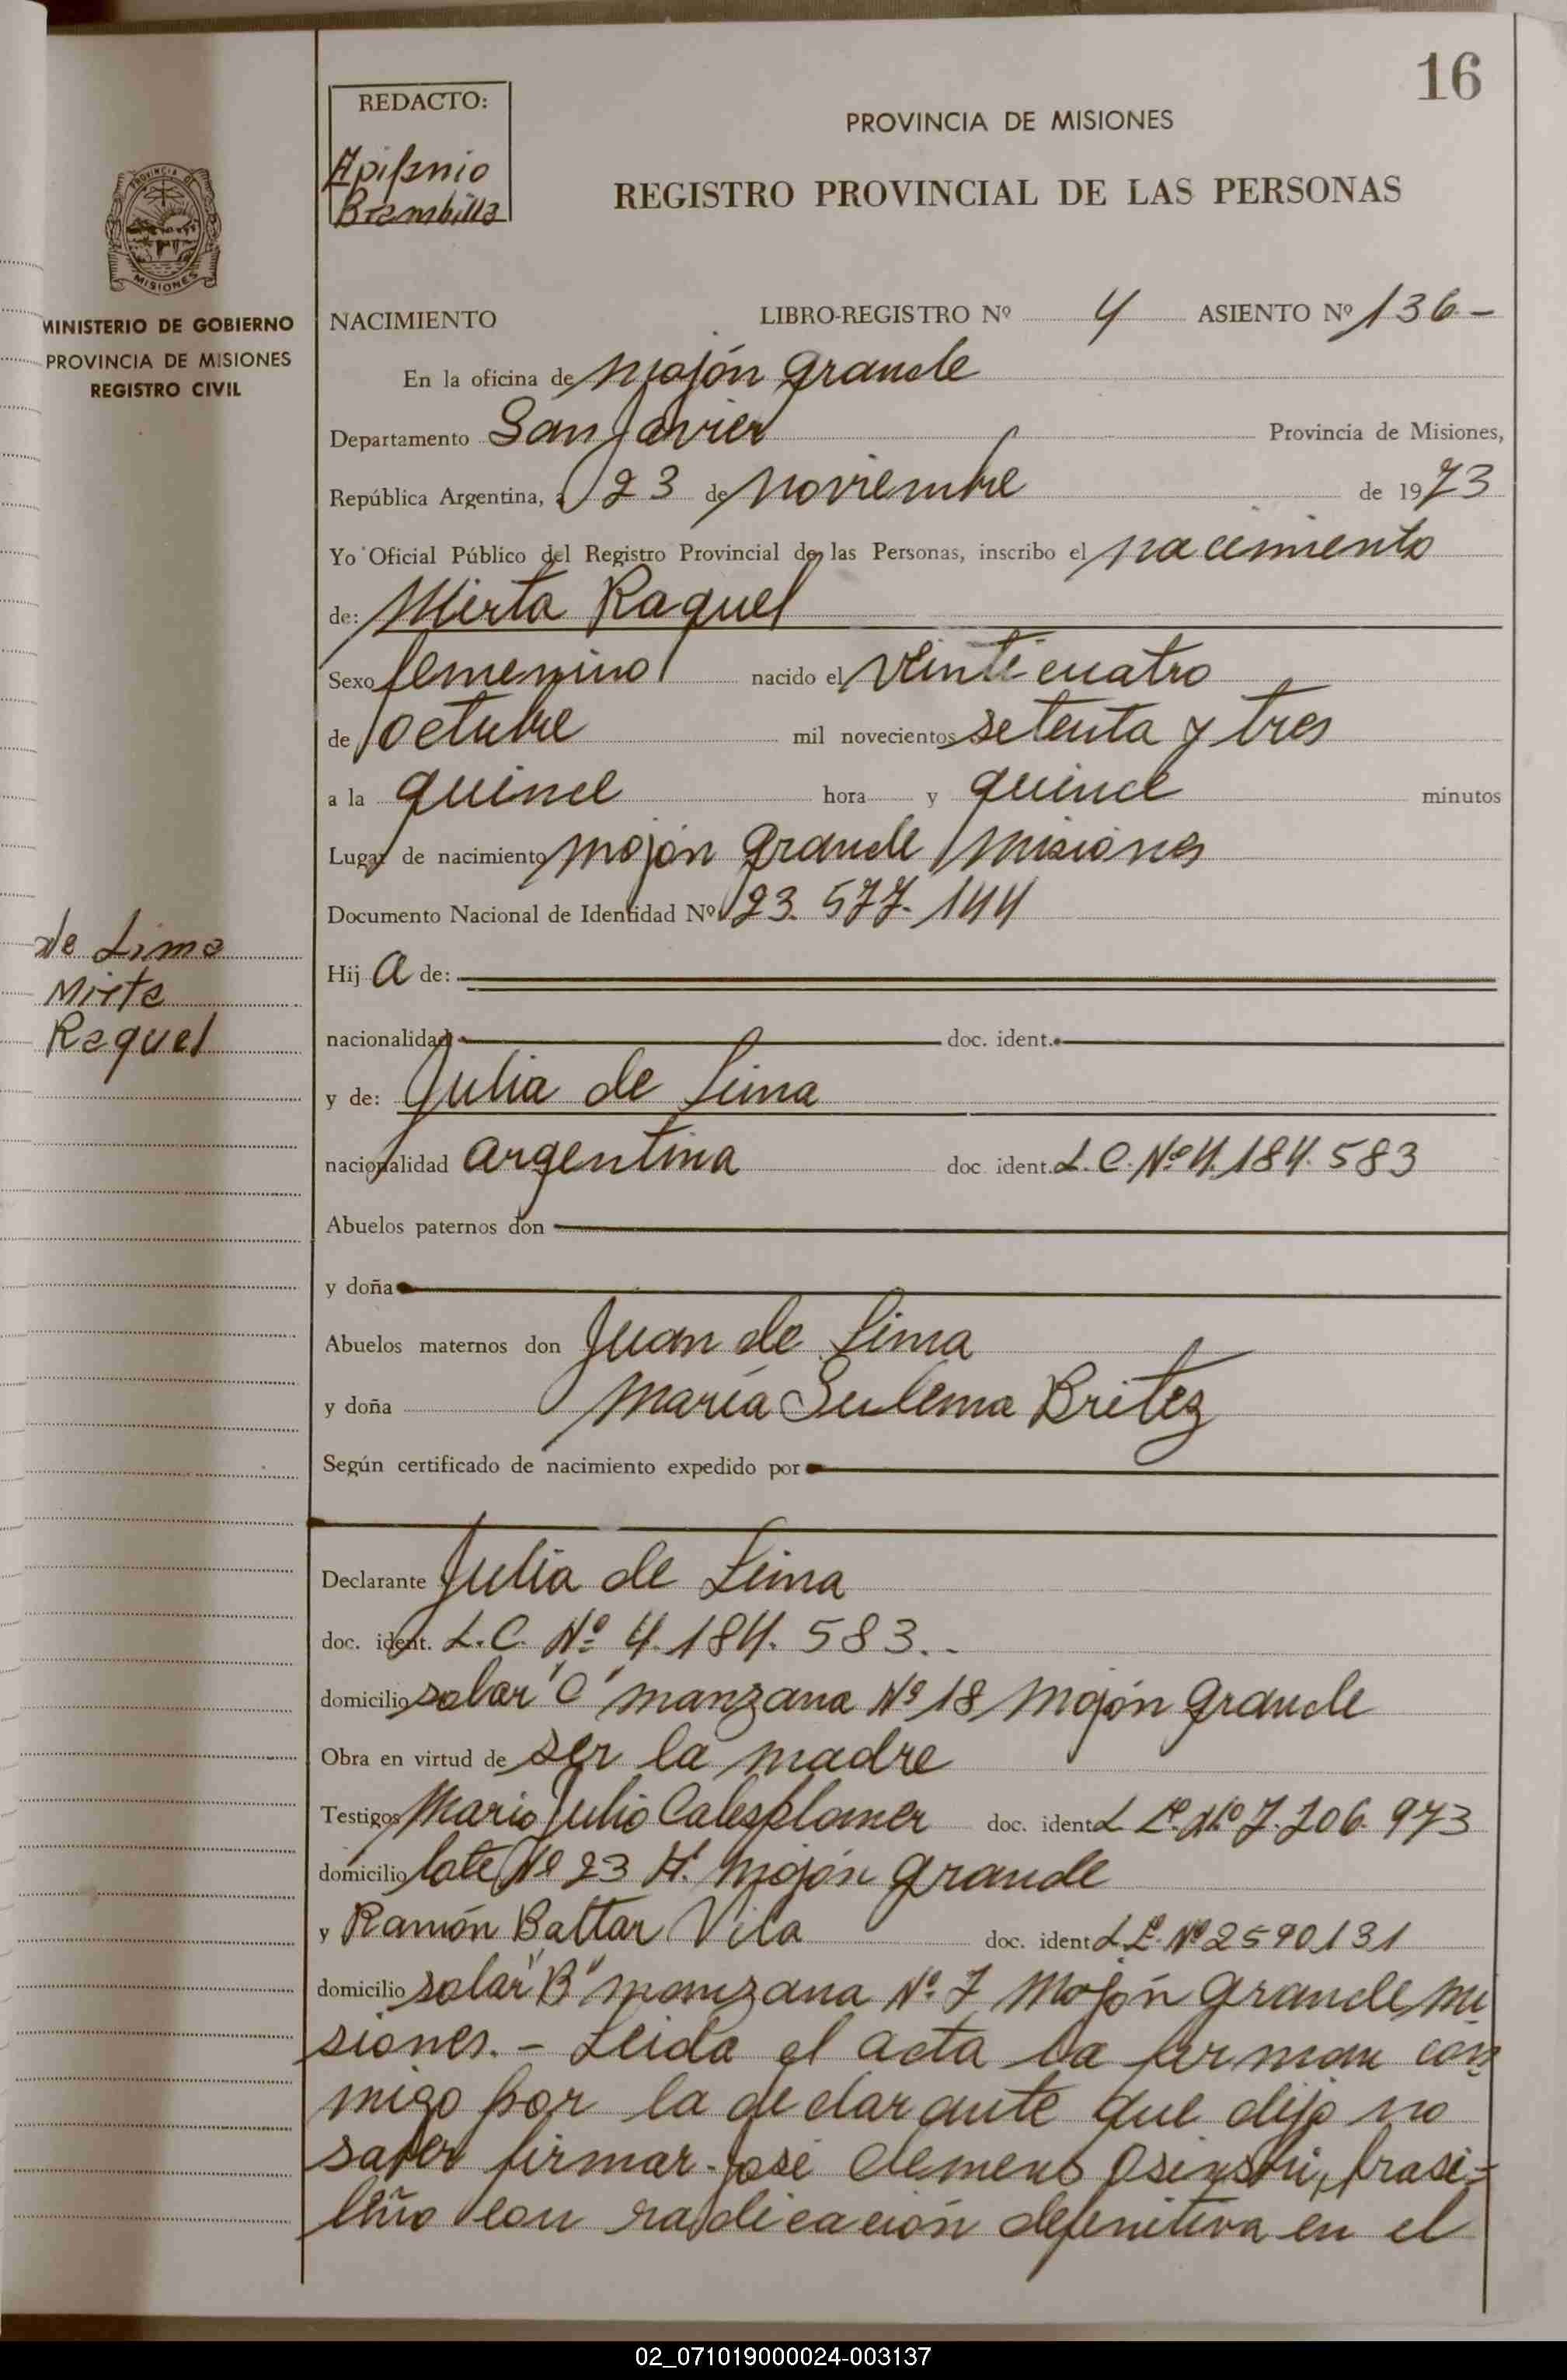 16
REDACTO:
Epifanio
Brambilla
PROVINCIA DE MISIONES
REGISTRO PROVINCIAL DE LAS PERSONAS
PROVINCIA DE
MISIONES
MINISTERIO DE GOBIERNO
PROVINCIA DE MISIONES
REGISTRO CIVIL
NACIMIENTO LIBRO-REGISTRO Nº 4 ASIENTO Nº 136-
En la oficina de Mojón Grande
Departamento San Javier Provincia de Misiones,
República Argentina, a 23 de Noviembre de 1973
Yo Oficial Público del Registro Provincial de las Personas, inscribo el nacimiento
de: Mirta Raquel
Sexo femenino nacido el veinticuatro
de octubre mil novecientos setenta y tres
a la quince hora y quince minutos
Lugar de nacimiento Mojón Grande Misiones
Documento Nacional de Identidad Nº 23.577.144
de Lima
Mirta
Raquel
Hij a de:
nacionalidad doc. ident.
y de: Julia de Lima
nacionalidad argentina doc. ident. L.C. Nº 4.184.583
Abuelos paternos don
y doña
Abuelos maternos don Juan de Lima
y doña María Sulema Britez
Según certificado de nacimiento expedido por
Declarante Julia de Lima
doc. ident. L.C. Nº 4.184.583.-
domicilio solar "C" manzana Nº 18 Mojón Grande
Obra en virtud de ser la madre
Testigos Mario Julio doc. ident L.E. Nº 7.706.973
domicilio lote Nº 23 Mojón Grande
y Ramón Battar Vila doc. ident L.E. Nº 2590131
domicilio solar "B" manzana Nº 7 Mojón Grande Mi
siones.- Leida el acta la firman con
migo por la declarante que dijo no
saber firmar José Clemens brasi-
leño con radicación definitiva en el
02_071019000024-003137